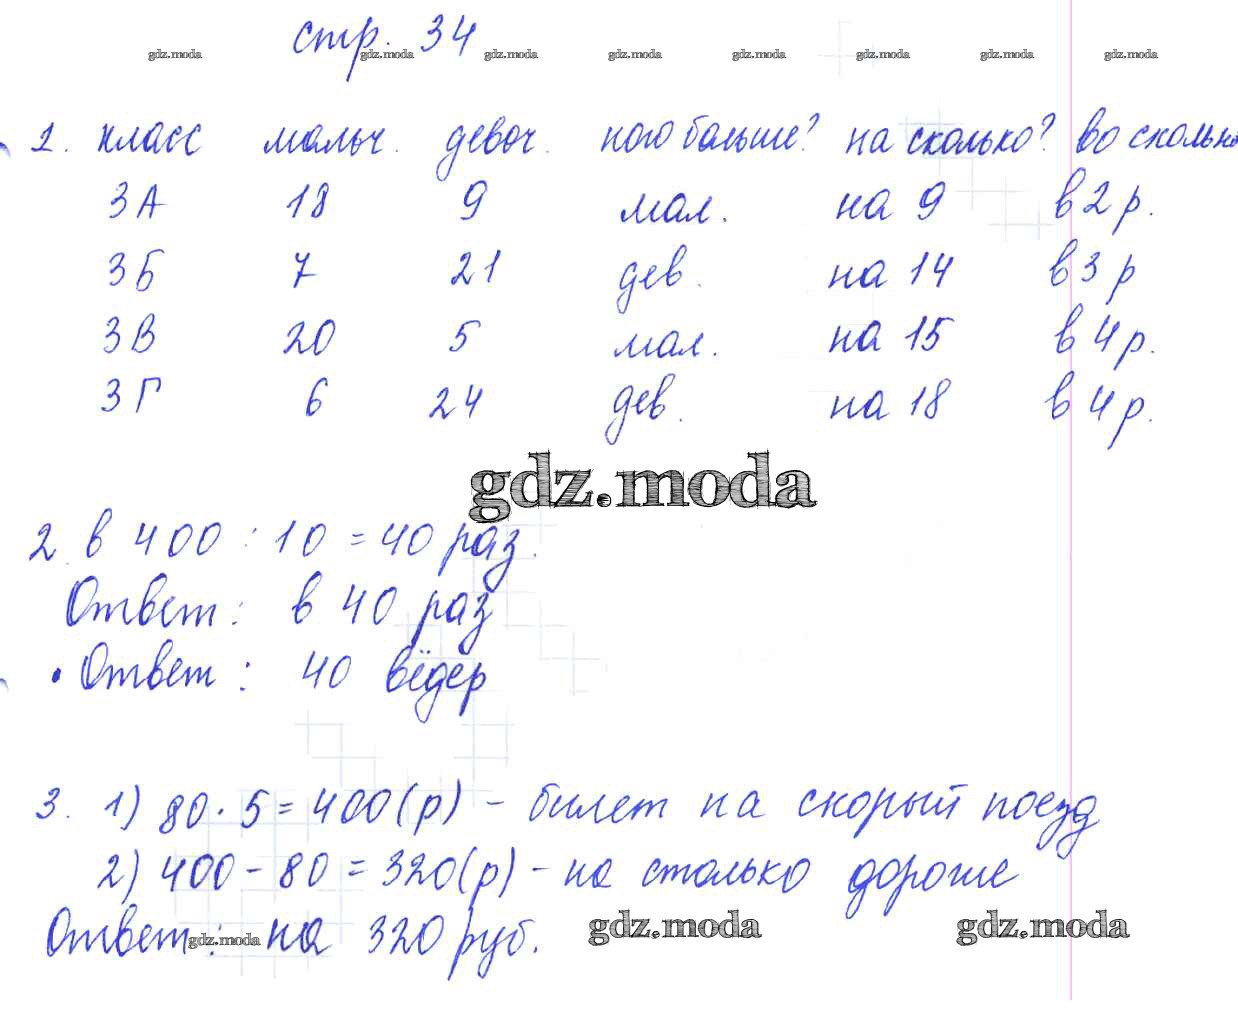 стр. 34
gdz.moda gdz.moda gdz.moda gdz.moda gdz.moda gdz.moda gdz.moda gdz.moda
1. класс мальч. девоч. кого больше? на сколько? во сколько
3А 18 9 мал. на 9 в 2 р.
3Б 7 21 дев. на 14 в 3 р
3В 20 5 мал. на 15 в 4 р.
3Г 6 24 дев. на 18 в 4 р.
gdz.moda
2. в 400 : 10 = 40 раз.
Ответ: в 40 раз
• Ответ: 40 вёдер
3. 1) 80 · 5 = 400 (р) - билет на скорый поезд
2) 400 - 80 = 320 (р) - на столько дороже
Ответ: на 320 руб.
gdz.moda gdz.moda gdz.moda